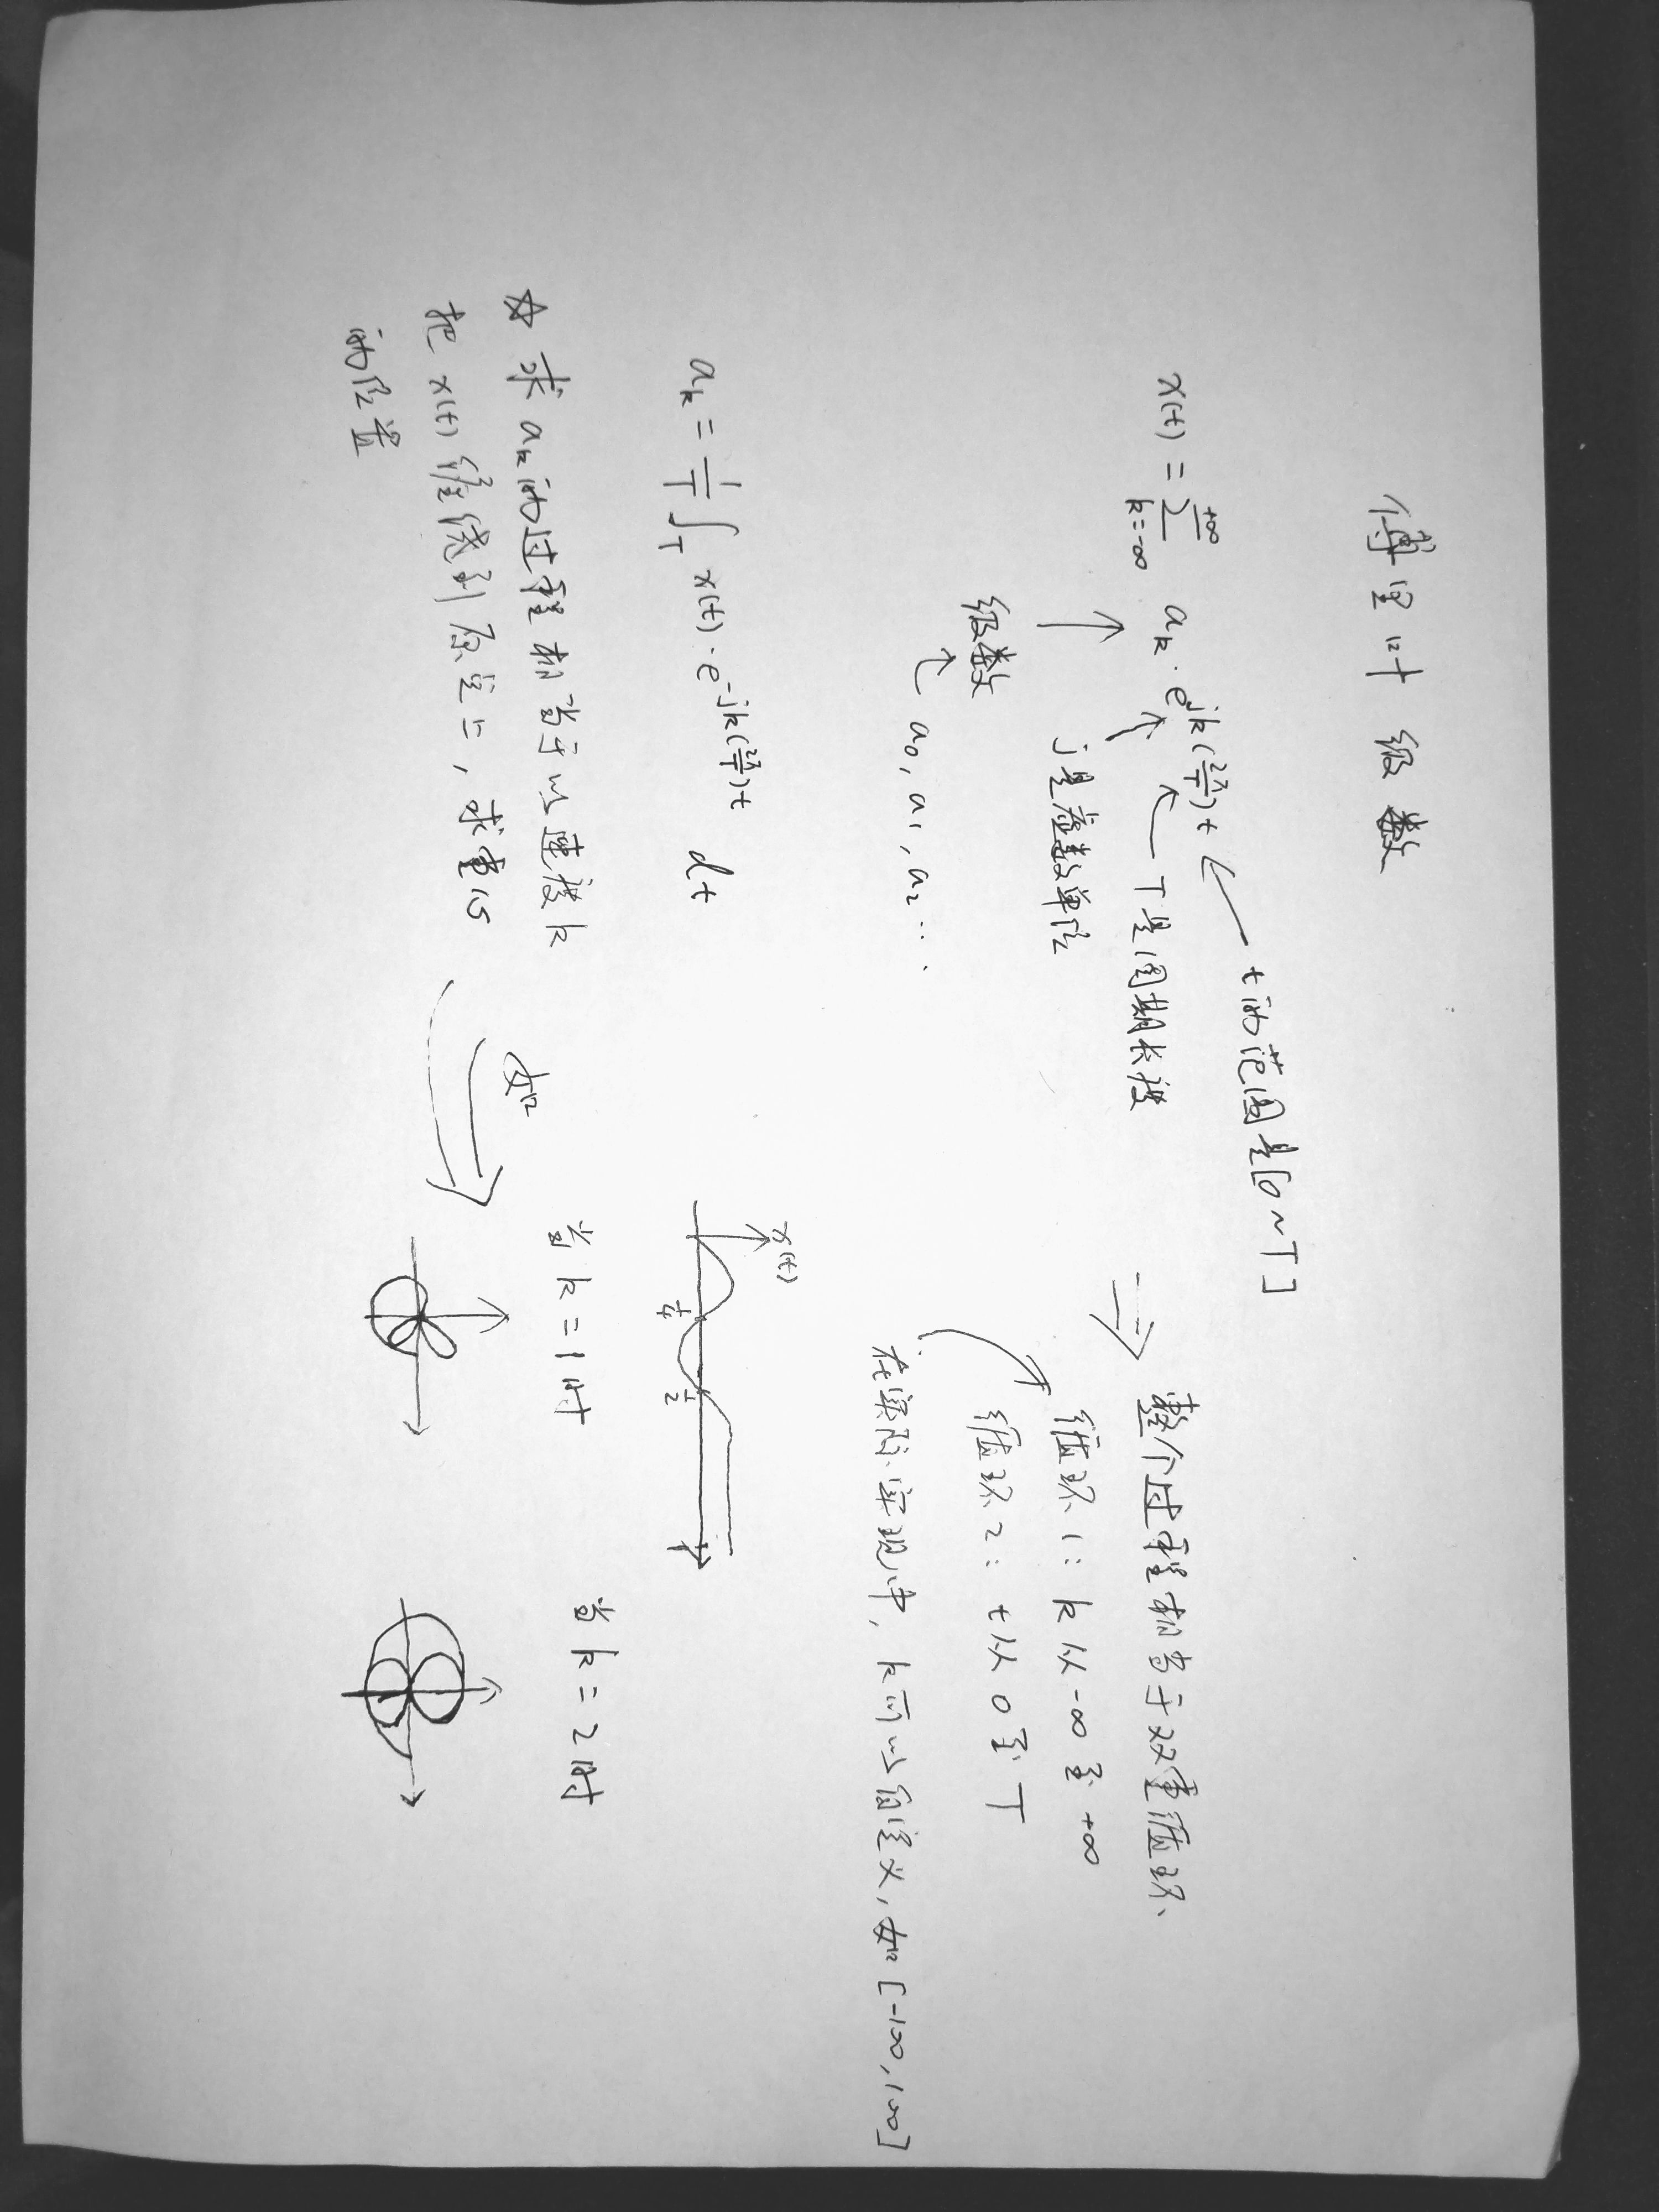 傅里叶 级数
t的范围是[0~T]
x(t) = \sum_{k=-∞}^{+∞} a_k · e^{jk(\frac{2π}{T})t}
T是周期长度
j是虚数单位
级数
a_0, a_1, a_2 ...
整个过程相当于双重循环、
循环1: k从-∞至+∞
循环2: t从0至T
在实际实现中, k可以自定义, 如[-100,100]
a_k = \frac{1}{T} ∫_T x(t) · e^{-jk(\frac{2π}{T})t} dt
x(t)
☆ 求a_k的过程相当于以速度k
把x(t)缠绕到原点上, 求重心
的位置
如
当k=1时
当k=2时